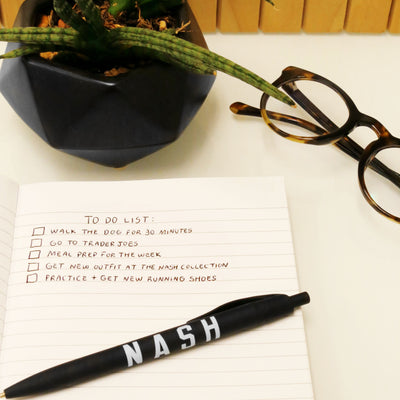 TO DO LIST:
WALK THE DOG FOR 30 MINUTES
GO TO TRADER JOES
MEAL PREP FOR THE WEEK
GET NEW OUTFIT AT THE NASH COLLECTION
PRACTICE + GET NEW RUNNING SHOES
NASH